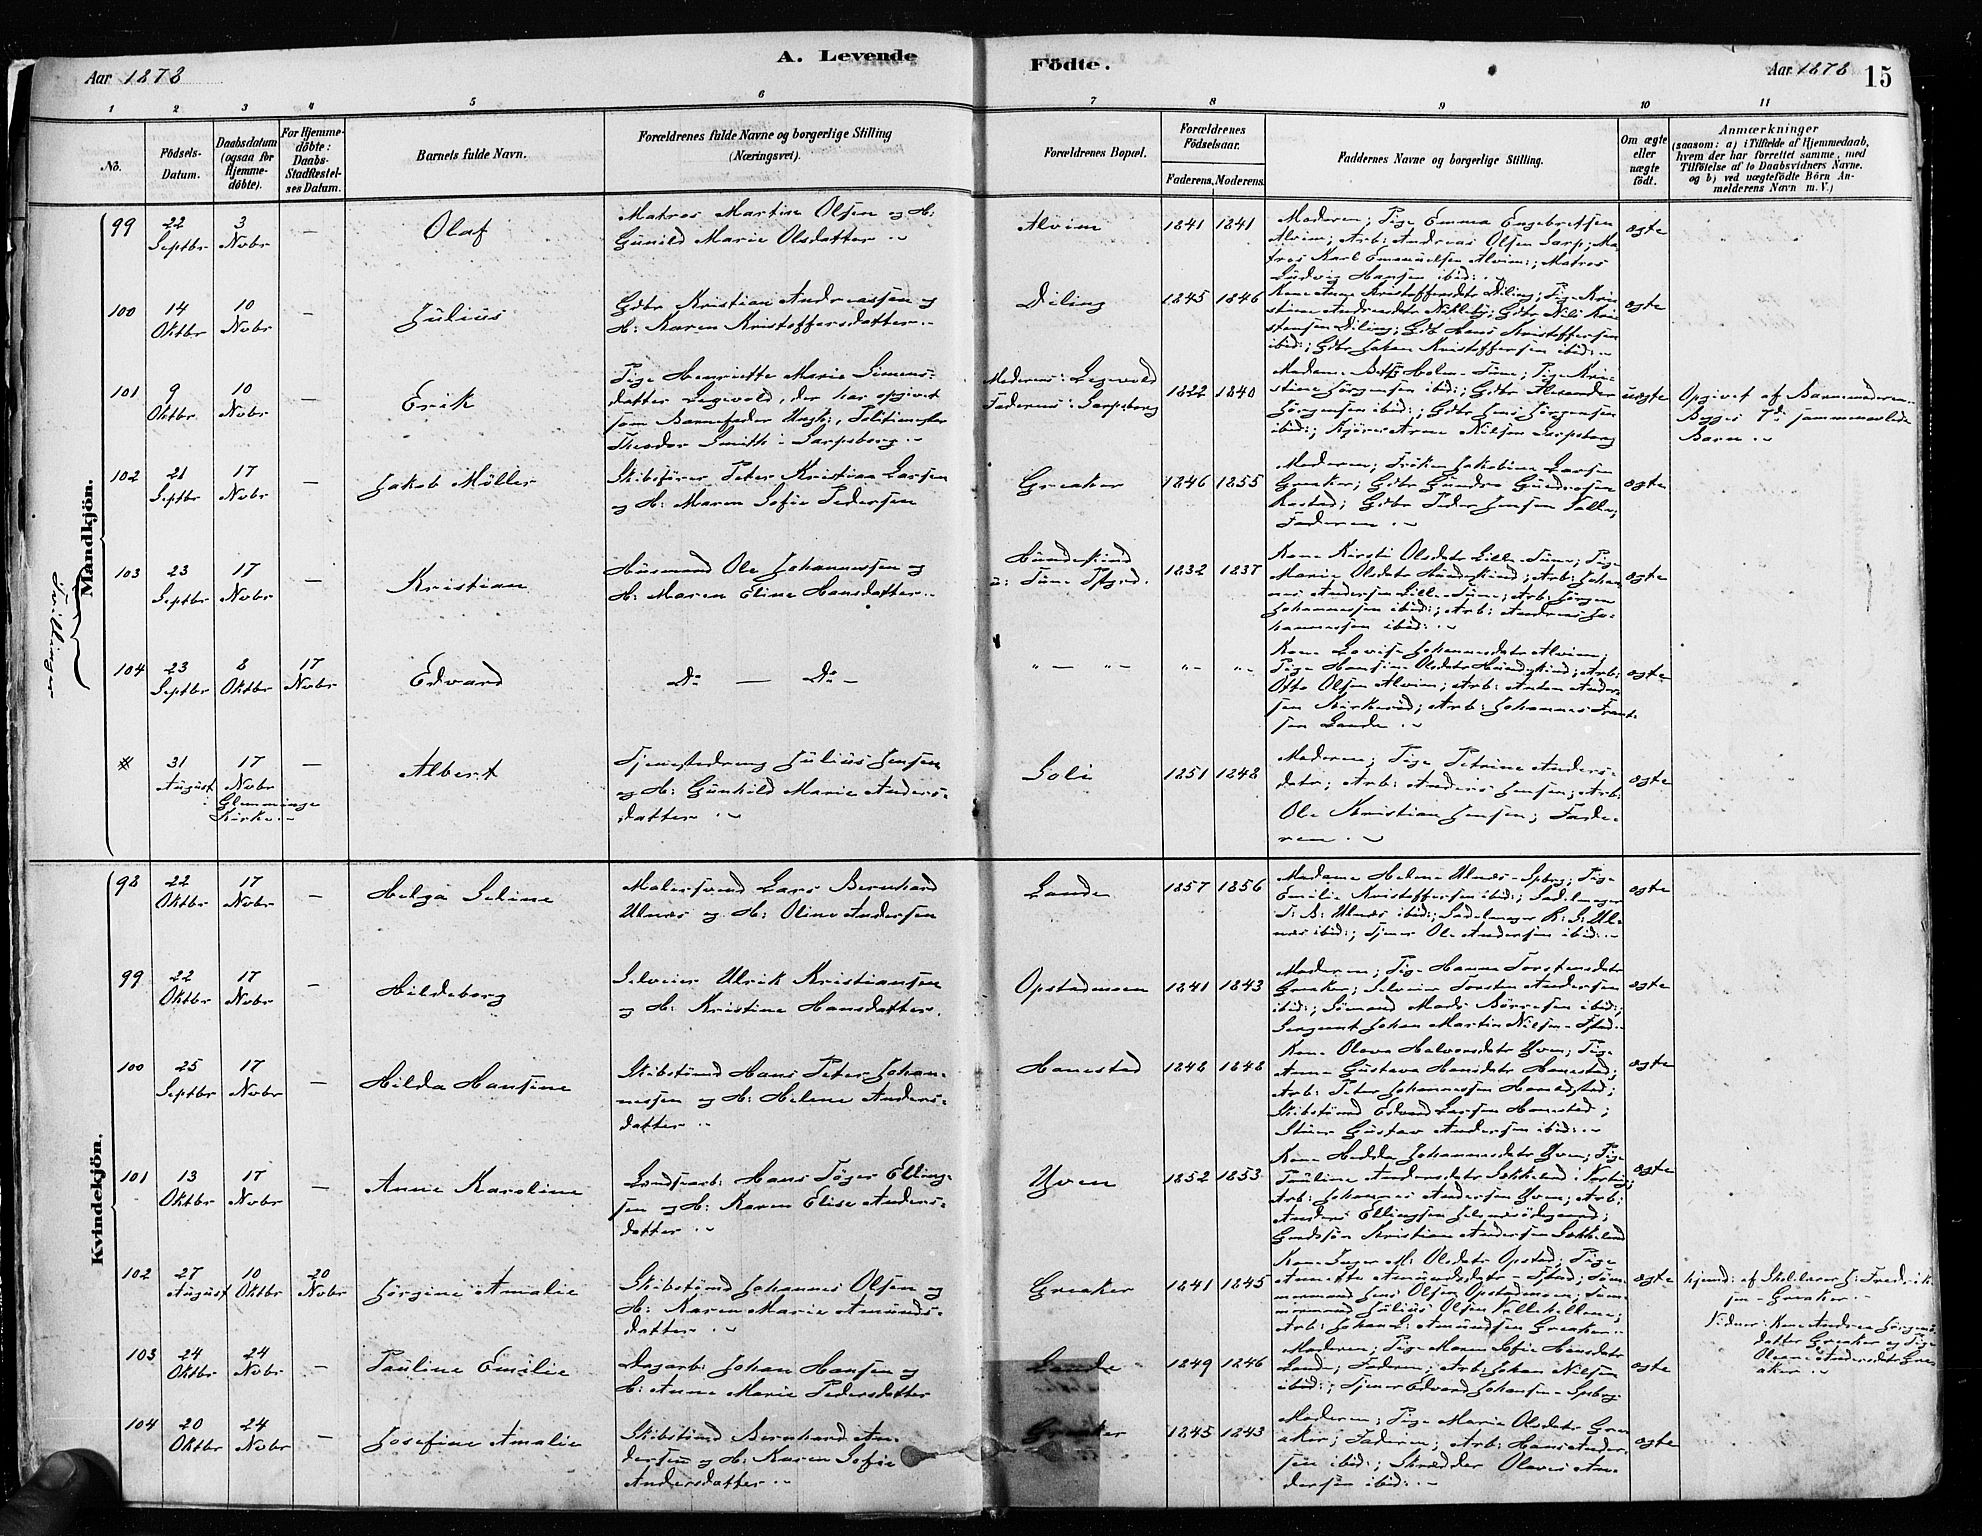 Aar 1878
A. Levende Födte.
Aar 1878
15
1 2 3 4 5 6 7 8 9 10 11
No.
Födsels-Datum.
Daabsdatum (ogsaa för Hjemme-döbte).
For Hjemme-döbte: Daabs-Stadfæstel-ses Datum.
Barnets fulde Navn.
Forældrenes fulde Navne og borgerlige Stilling
(Næringsvei).
Forældrenes Bopæl.
Forældrenes Födselsaar.
Faderens. Moderens.
Faddernes Navne og borgerlige Stilling.
Om ægte eller uægte födt.
Anmærkninger
(saasom: a) i Tilfælde af Hjemmedaab,
hvem der har forrettet samme, med
Tilföielse af to Daabsvidners Navne,
og b) ved uægtefödte Börn An-
melderens Navn m. V.)
Mandkjön.
Tvillinger
99 22 Septbr 3 Novbr — Olaf
Matros Martin Olsen og H:
Gunild Marie Olsdatter
Alvim 1841 1841
Moderen; Pige Emma Engebretsen
Alvim; Arb: Andreas Olsen Sarp; Ma-
tros Karl Emanuelsen Alvim; Matros
Ludvig Hansen ibid:
ægte
100 14 Oktbr 10 Novbr — Julius
Gdbr Kristian Andreassen og
H: Karen Kristoffersdatter
Diling 1845 1846
Kone Anne Kristoffersdatr Diling; Pige Kri-
stine Andreasdatr Nikleby; Gdbr Nils Kri-
stensen Diling; Gdbr Hans Kristoffersen
ibid:; Gdbr Johan Kristoffersen ibid:
ægte
101 9 Oktbr 10 Novbr — Erik
Pige Henriette Marie Simens-
datter Legevold, der har opgivet
som Barnefader Ungk:, Politimester
Theodor Smith i Sarpsborg
Moderens: Legevold
Faderens: Sarpsborg
1822 1840
Madam Holm Tune; Pige Kri-
stine Jörgensen ibid:; Gdbr Alexander
Jörgensen ibid:; Gdbr Jens Jörgensen
ibid:; Arne Nilsen Sarpsborg
uægte
Opgivet af Barnemoderen.
Begges 7de sammenavlede
Barn.
102 21 Septbr 17 Novbr — Jakob Möller
Skibsförer Peter Kristian Larsen
og H: Maren Sofie Pedersen
Greaker 1846 1855
Moderen; Fröken Jakobine Larsen
Greaker; Gdbr Gunder Gundersen
Gdbr Peder Jensen
Faderen
ægte
103 23 Septbr 17 Novbr — Kristian
Husmand Ole Johannessen og
H: Maren Eline Hansdatter
Hundskind
u: Tune Pstgrd.
1832 1837
Kone Kirsti Olsdatr Lille-Tune; Pige
Marie Olsdatr Hundskind; Arb: Johan-
nes Andersen Lille-Tune; Arb: Jörgen
Johannessen ibid:; Arb: Andreas Jo-
hannessen ibid:
ægte
104 23 Septbr 8 Oktbr 17 Novbr Edvard
Do — Do —
" — " — " — " —
Kone Lovise Johannesdatr Alvim;
Pige Hansine Olsdatr Hundskind; Arb:
Otto Olsen Alvim; Arb: Anton Ander-
sen Kirkeröd; Arb: Johannes Frant-
sen Lande
ægte
31 August 17 Novbr i Glemminge Kirke — Albert
Tjenestedreng Julius Jensen
og H: Gunhild Marie Anders-
datter
Soli 1851 1848
Moderen; Pige Petrine Anders-
datr; Arb: Anders Jensen; Arb:
Ole Kristian Jensen; Fade-
ren
ægte
Kvindekjön.
98 22 Oktbr 17 Novbr — Helga Seline
Malersvend Lars Bernhard
Ulnæs og H: Oline Andersen
Lande 1857 1856
Madame Helene Ulnæs Spbrg; Pige
Emilie Kristoffersen ibid:; Sadelmager
S. B. Ulnæs ibid:; Sadelmager Ul-
næs ibid:; Tjener Ole Andersen ibid:
ægte
99 22 Oktbr 17 Novbr — Hildeborg
Selveier Ulrik Kristiansen
og H: Kristine Hansdatter
Opstadmoen 1841 1843
Moderen; Pige Hanna Torstensdatr
Greaker; Selveier Torsten Andersen
ibid:; Sömand Mads Börresen ibid:;
Sergeant Johan Martin Nilsen
ægte
100 25 Septbr 17 Novbr — Hilda Hansine
Skibstömd Hans Peter Johan-
nessen og H: Helene Anders-
datter
Hanestad 1848 1848
Kone Oleva Halvorsdatr Yven; Pige
Anne Gustava Hansdatr Hanestad;
Arb: Peter Johannessen Hanestad;
Skibstömd Edvard Larsen Hanestad;
Stuer Gustav Andersen ibid:
ægte
101 13 Oktbr 17 Novbr — Anne Karoline
Landsarb: Hans Töger Elling-
sen og H: Karen Elise Anders-
datter
Yven 1852 1853
Kone Hedda Johannesdatr Yven; Pige
Pauline Andersdatr i
Arb: Johannes Andersen Yven; Arb:
Anders Ellingsen
Kristian Andersen
ægte
102 27 August 10 Oktbr 20 Novbr Jörgine Amalie
Skibstömd Johannes Olsen og
H: Karen Marie Amunds-
datter
Greaker 1841 1845
Kone Olsdatr Opstad; Pige
Annette Amundsdatr Töm-
mermand Jens Olsen Opstadmoen; Töm-
mermand Julius Olsen
Arb: Johan L: Amundsen Greaker
ægte
Hjemd: af Skolelærer J: Fredrik-
sen Greaker
Vidner: Kone Andrea Jörgens-
datter Greaker og Pige
Andersdatr Gre-
aker
103 24 Oktbr 24 Novbr — Pauline Emilie
Dagarb: Johan Hansen og
H: Anne Marie Pedersdatter
Lande 1849 1846
Moderen; Pige Maren Sofie Hansdatr
Lande; Faderen; Arb: Johan Nilsen
ibid:; Tjener Edvard Johansen Spbrg
ægte
104 20 Oktbr 24 Novbr — Josefine Amalie
Skibstömd Bernhard An-
dersen og H: Karen Sofie
Andersdatter
Greaker 1845 1843
Moderen; Pige Marie Olsdatr Gre-
aker; Faderen; Arb: Hans Ander-
sen ibid:; Skrædder Olavus An-
dersen ibid:
ægte